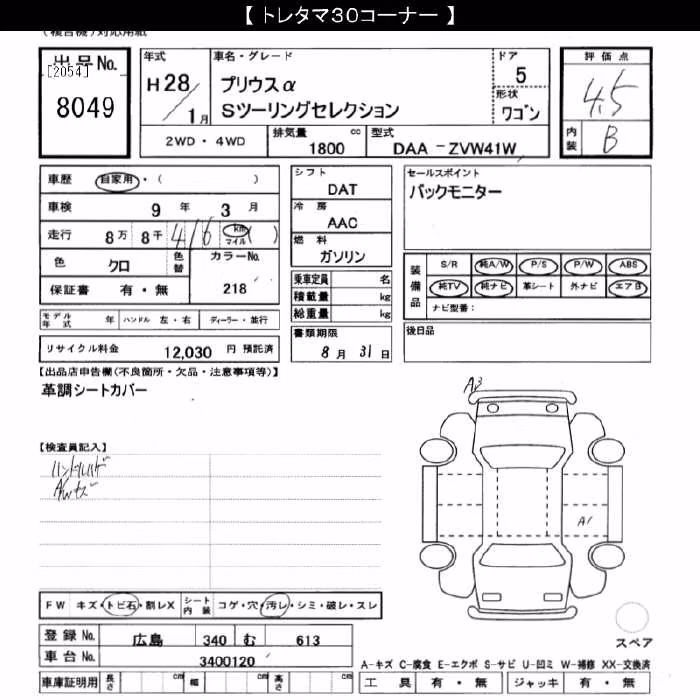 【 トレタマ３０コーナー 】
(複合機)対応用紙
出品No.
[2054]
8049
年式
H 28 / 1月
車名・グレード
プリウスα
Sツーリングセレクション
ドア
5
形状
ワゴン
2WD・4WD
排気量 cc
1800
型式
DAA -ZVW41W
評価点
4.5
内装
B
車歴 自家用・( )
車検 9 年 3 月
走行 8万 8千 416 km マイル ( )
色 クロ 色替 カラーNo.
保証書 有・無 218
モデル年式 年 ハンドル 左・右 ディーラー・並行
リサイクル料金 12,030 円 預託済
シフト
DAT
冷房
AAC
燃料
ガソリン
乗車定員 名
積載量 kg
総重量 kg
書類期限
8月 31日
セールスポイント
バックモニター
装備品
S/R 純A/W P/S P/W ABS
純TV 純ナビ 革シート 外ナビ エアB
ナビ型番:
後日品
【出品店申告欄(不良箇所・欠品・注意事項等)】
革調シートカバー
【検査員記入】
ハンドルハゲ
A/Wキズ
A3
A1
スペア
FW キズ・トビ石・割レX シート内装 コゲ・穴・汚レ・シミ・破レ・スレ
登録No. 広島 340 む 613
車台No. 3400120
A-キズ C-腐食 E-エクボ S-サビ U-凹ミ W-補修 XX-交換済
車庫証明用 長さ cm 幅 cm 高さ cm
工具 有・無 ジャッキ 有・無